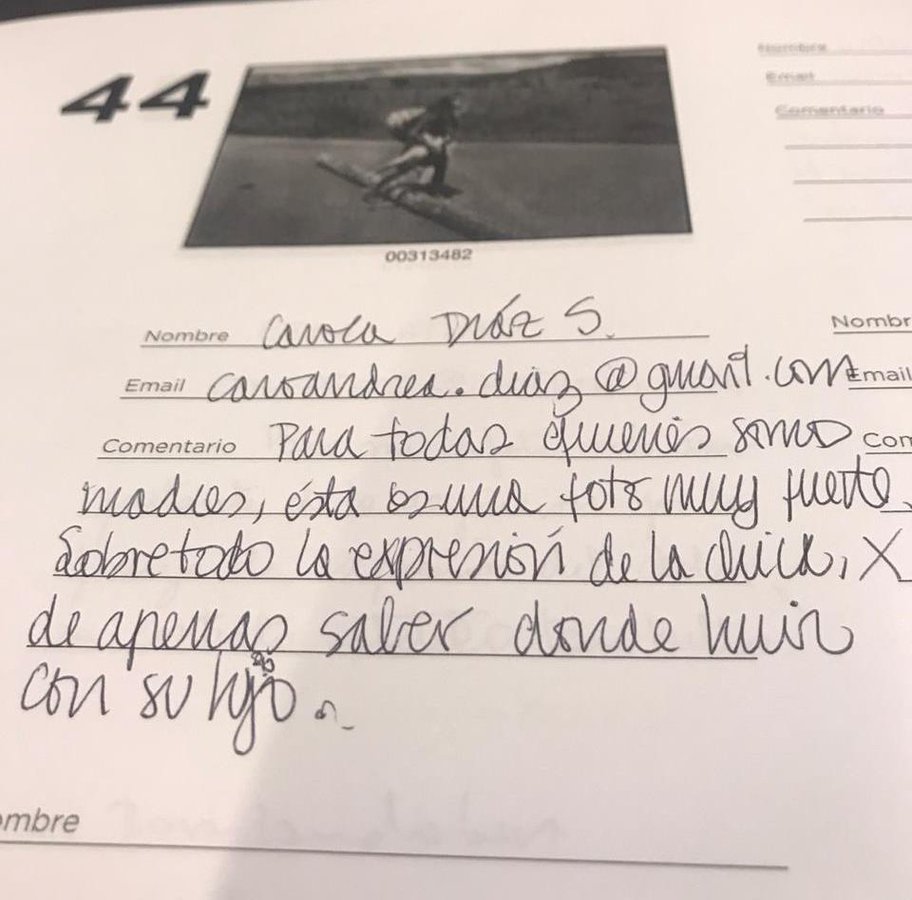 44
00313482
Nombre Carola Díaz S.
Email caroandrea.diaz@gmail.com
Comentario Para todas quienes somos
madres, ésta es una foto muy fuerte.
Sobretodo la expresión de la chica, X
de apenas saber donde huir
con su hijo.
ombre
Nombre
Email
Comentario
Nombr
Email
Com